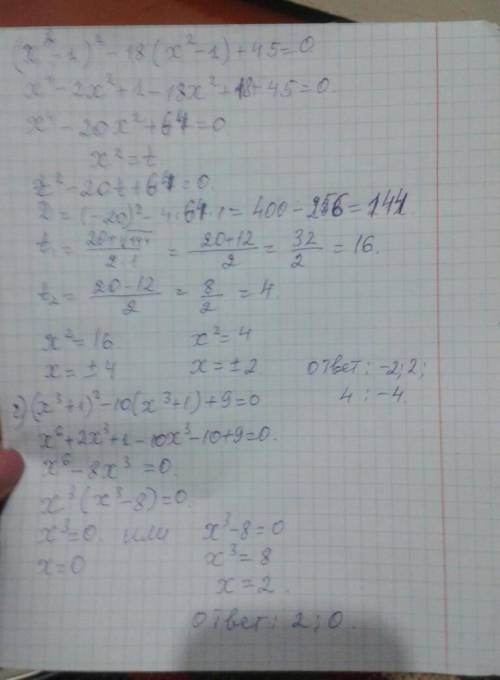 (x²-1)²-18(x²-1)+45=0
x⁴-2x²+1-18x²+18+45=0
x⁴-20x²+64=0
x²=t
t²-20t+64=0
D=(-20)²-4·64·1=400-256=144
t₁=(20+√144)/(2·1)=(20+12)/2=32/2=16.
t₂=(20-12)/2=8/2=4.
x²=16 x²=4
x=±4 x=±2 ответ: -2; 2;
4; -4.
2) (x³+1)²-10(x³+1)+9=0
x⁶+2x³+1-10x³-10+9=0.
x⁶-8x³=0.
x³(x³-8)=0.
x³=0 или x³-8=0
x=0 x³=8
x=2.
ответ: 2; 0.